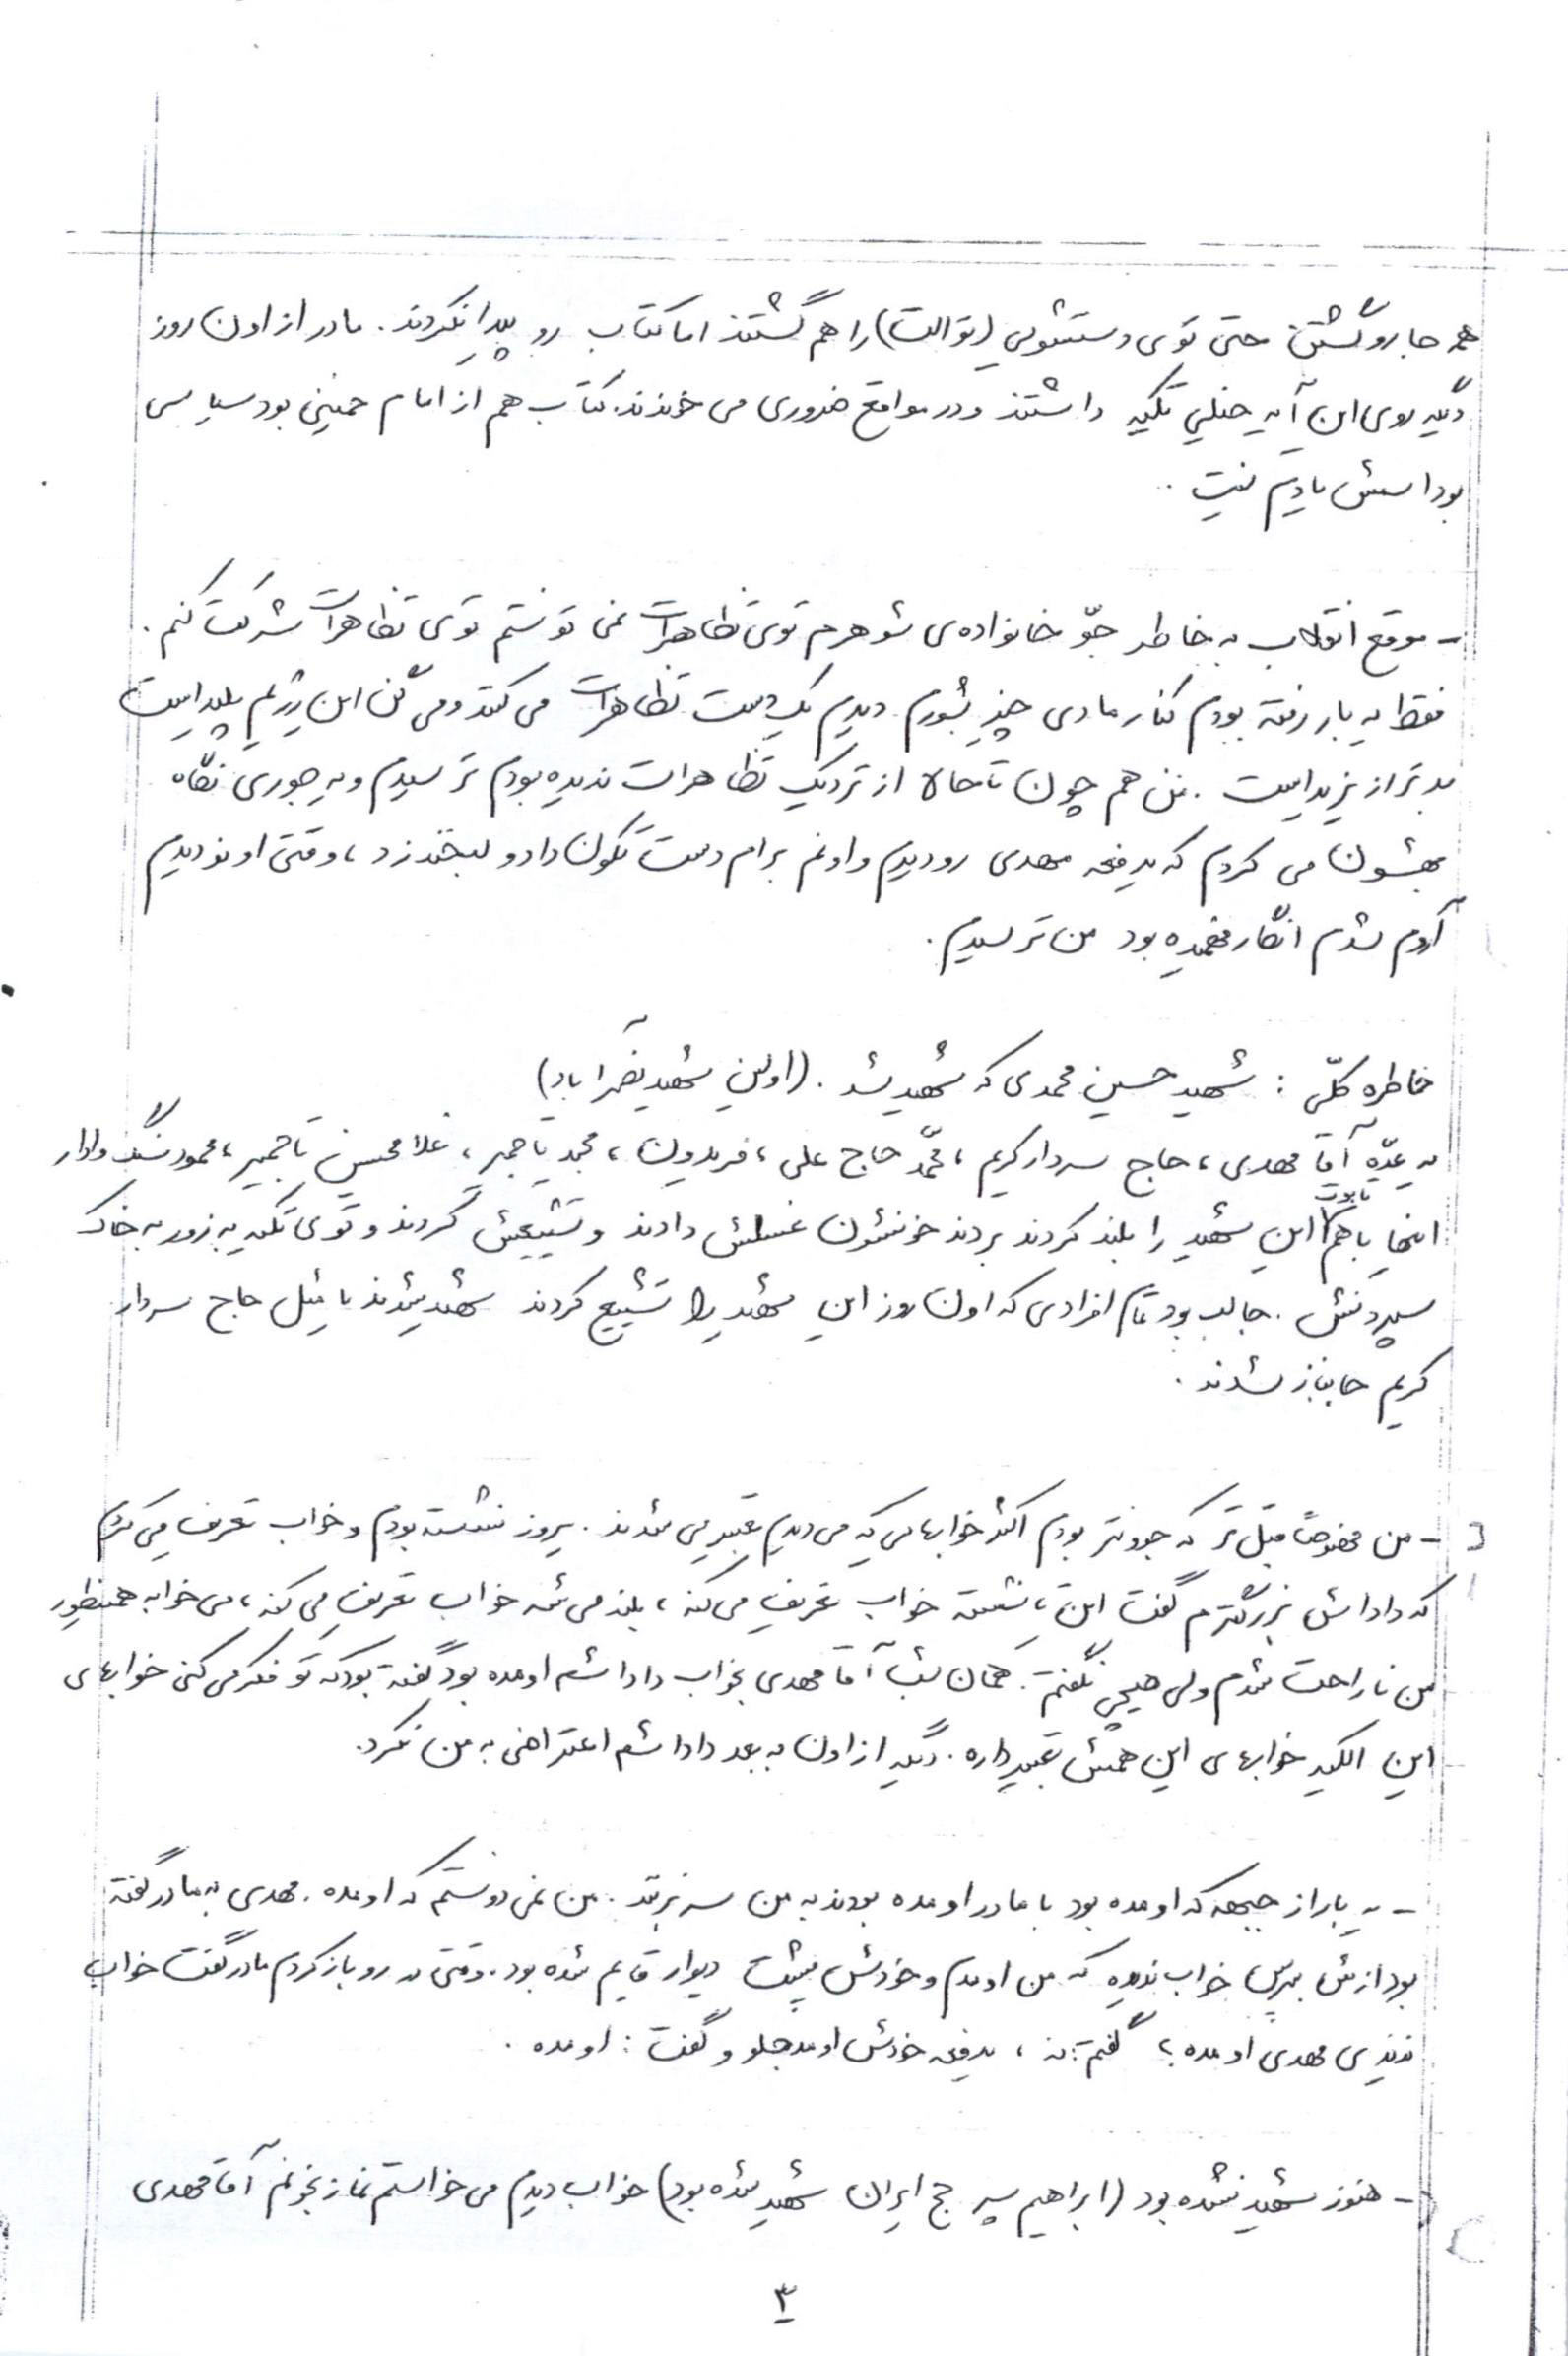 همه جا رو گشتن حتی توی دستشویی (توالت) را هم گشتند اما کتاب رو پیدا نکردند. مادر از اون روز
دیگه روی این آیه خیلی تکیه داشتند و در مواقع ضروری می خوندند. کتاب هم از امام خمینی بود سیاسی
بود اسمش یادم نیست.
- موقع انقلاب به خاطر جوّ خانواده‌ی شوهرم توی تظاهرات نمی تونستم توی تظاهرات شرکت کنم.
فقط یه بار رفته بودم کنار مادی چیز بشورم دیدم یک دست تظاهرات می کنند و می گن این رژیم پلید است
بدتر از یزید است. من هم چون تا حالا از نزدیک تظاهرات ندیده بودم ترسیدم و یه جوری نگاه
بهشون می کردم که یدفعه مهدی رو دیدم و اونم برام دست تکون داد و لبخند زد، وقتی اونو دیدم
آروم شدم انگار فهمیده بود من ترسیدم.
خاطره کلّی : شهید حسین محمدی که شهید شد. (اولین شهید نصرآباد)
یه عدّه آقا مهدی، حاج سردار کریم، محمّد حاج علی، فریدون، مجید تاجمیر، غلامحسین تاجمیر، محمود
اینها باهم تابوت این شهید را بلند کردند بردند خونشون غسلش دادند و تشییعش کردند و توی تکیه به زور به خاک
سپردنش. جالب بود تمام افرادی که اون روز این شهید را تشییع کردند شهید شدند یا مثل حاج سردار
کریم جانباز شدند.
- من مخصوصاً قبل تر که جوونتر بودم اکثر خوابهایی که می دیدم تعبیر می شدند. یروز نشسته بودم و خواب تعریف می کردم
که داداش بزرگترم گفت این تا نشسته خواب تعریف می کنه، بلند می شه خواب تعریف می کنه، می خوابه همینطور
من ناراحت شدم ولی هیچی نگفتم. همان شب آقا مهدی بخواب داداشم اومده بود گفته بود که تو فکر می کنی خوابهای
این الکیه خوابهای این همش تعبیر داره. دیگه از اون به بعد داداشم اعتراضی به من نکرد.
- یه بار از جبهه که اومده بود با مادر اومده بودند به من سر بزنند. من نمی دونستم که اومده. مهدی به مادر گفته
بود ازش بپرس خواب ندیده که من اومدم و خودش پشت دیوار قایم شده بود. وقتی در رو باز کردم مادر گفت خواب
ندیدی مهدی اومده؟ گفتم: نه، یدفعه خودش اومد جلو و گفت : اومده.
- هنوز شهید نشده بود (ابراهیم پسر حج ایران شهید شده بود) خواب دیدم می خواستم نماز بخونم آقا مهدی
۳